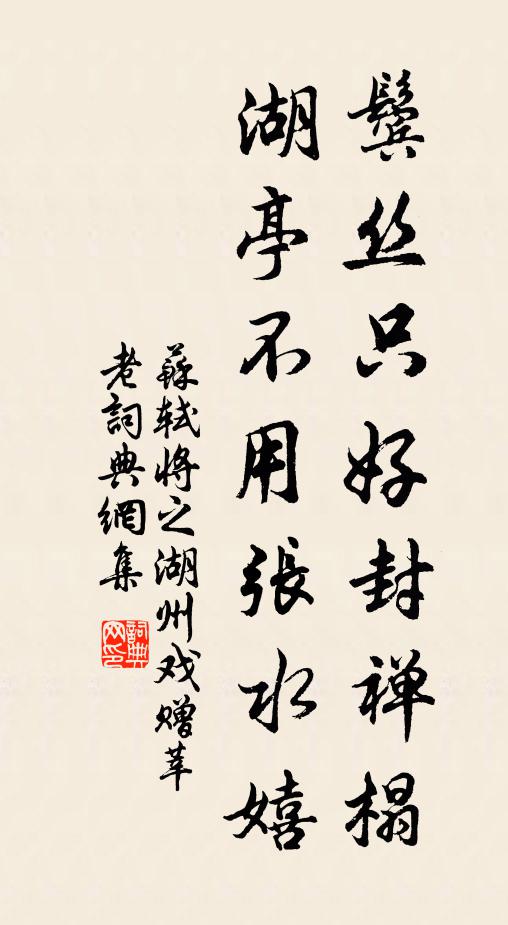 鬓丝只好封禅榻
湖亭不用張水嬉
蘇轼将之湖州戏赠莘
老詞典網集
詞典
网印